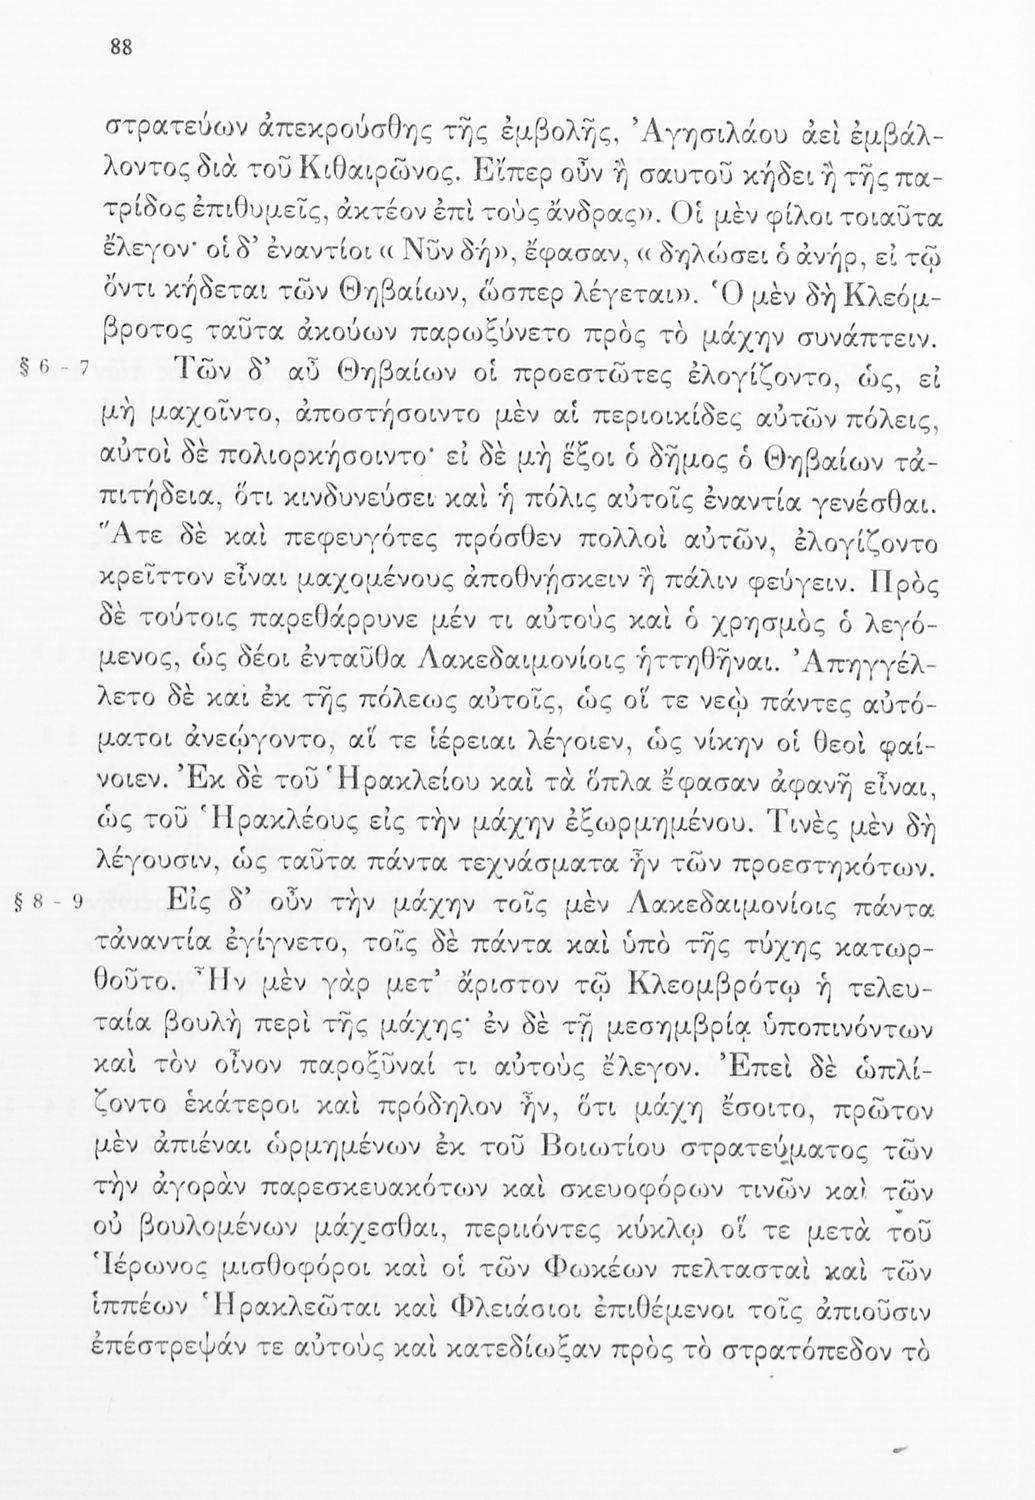 88
στρατεύων ἀπεκρούσθης τῆς ἐμβολῆς, Ἀγησιλάου ἀεὶ ἐμβάλ-
λοντος διὰ τοῦ Κιθαιρῶνος. Εἴπερ οὖν ἢ σαυτοῦ κήδει ἢ τῆς πα-
τρίδος ἐπιθυμεῖς, ἀκτέον ἐπὶ τοὺς ἄνδρας». Οἱ μὲν φίλοι τοιαῦτα
ἔλεγον· οἱ δ’ ἐναντίοι « Νῦν δή», ἔφασαν, « δηλώσει ὁ ἀνήρ, εἰ τῷ
ὄντι κήδεται τῶν Θηβαίων, ὥσπερ λέγεται». Ὁ μὲν δὴ Κλεόμ-
βροτος ταῦτα ἀκούων παρωξύνετο πρὸς τὸ μάχην συνάπτειν.
§ 6 - 7 Τῶν δ’ αὖ Θηβαίων οἱ προεστῶτες ἐλογίζοντο, ὡς, εἰ
μὴ μαχοῖντο, ἀποστήσοιντο μὲν αἱ περιοικίδες αὐτῶν πόλεις,
αὐτοὶ δὲ πολιορκήσοιντο· εἰ δὲ μὴ ἕξοι ὁ δῆμος ὁ Θηβαίων τἀ-
πιτήδεια, ὅτι κινδυνεύσει καὶ ἡ πόλις αὐτοῖς ἐναντία γενέσθαι.
Ἅτε δὲ καὶ πεφευγότες πρόσθεν πολλοὶ αὐτῶν, ἐλογίζοντο
κρεῖττον εἶναι μαχομένους ἀποθνῄσκειν ἢ πάλιν φεύγειν. Πρὸς
δὲ τούτοις παρεθάρρυνε μέν τι αὐτοὺς καὶ ὁ χρησμὸς ὁ λεγό-
μενος, ὡς δέοι ἐνταῦθα Λακεδαιμονίοις ἡττηθῆναι. Ἀπηγγέλ-
λετο δὲ καὶ ἐκ τῆς πόλεως αὐτοῖς, ὡς οἵ τε νεῲ πάντες αὐτό-
ματοι ἀνεῴγοντο, αἵ τε ἱέρειαι λέγοιεν, ὡς νίκην οἱ θεοὶ φαί-
νοιεν. Ἐκ δὲ τοῦ Ἡρακλείου καὶ τὰ ὅπλα ἔφασαν ἀφανῆ εἶναι,
ὡς τοῦ Ἡρακλέους εἰς τὴν μάχην ἐξωρμημένου. Τινὲς μὲν δὴ
λέγουσιν, ὡς ταῦτα πάντα τεχνάσματα ἦν τῶν προεστηκότων.
§ 8 - 9 Εἰς δ’ οὖν τὴν μάχην τοῖς μὲν Λακεδαιμονίοις πάντα
τἀναντία ἐγίγνετο, τοῖς δὲ πάντα καὶ ὑπὸ τῆς τύχης κατωρ-
θοῦτο. Ἦν μὲν γὰρ μετ’ ἄριστον τῷ Κλεομβρότῳ ἡ τελευ-
ταία βουλὴ περὶ τῆς μάχης· ἐν δὲ τῇ μεσημβρίᾳ ὑποπινόντων
καὶ τὸν οἶνον παροξῦναί τι αὐτοὺς ἔλεγον. Ἐπεὶ δὲ ὡπλί-
ζοντο ἑκάτεροι καὶ πρόδηλον ἦν, ὅτι μάχη ἔσοιτο, πρῶτον
μὲν ἀπιέναι ὡρμημένων ἐκ τοῦ Βοιωτίου στρατεύματος τῶν
τὴν ἀγορὰν παρεσκευακότων καὶ σκευοφόρων τινῶν καὶ τῶν
οὐ βουλομένων μάχεσθαι, περιιόντες κύκλῳ οἵ τε μετὰ τοῦ
Ἱέρωνος μισθοφόροι καὶ οἱ τῶν Φωκέων πελτασταὶ καὶ τῶν
ἱππέων Ἡρακλεῶται καὶ Φλειάσιοι ἐπιθέμενοι τοῖς ἀπιοῦσιν
ἐπέστρεψάν τε αὐτοὺς καὶ κατεδίωξαν πρὸς τὸ στρατόπεδον τὸ